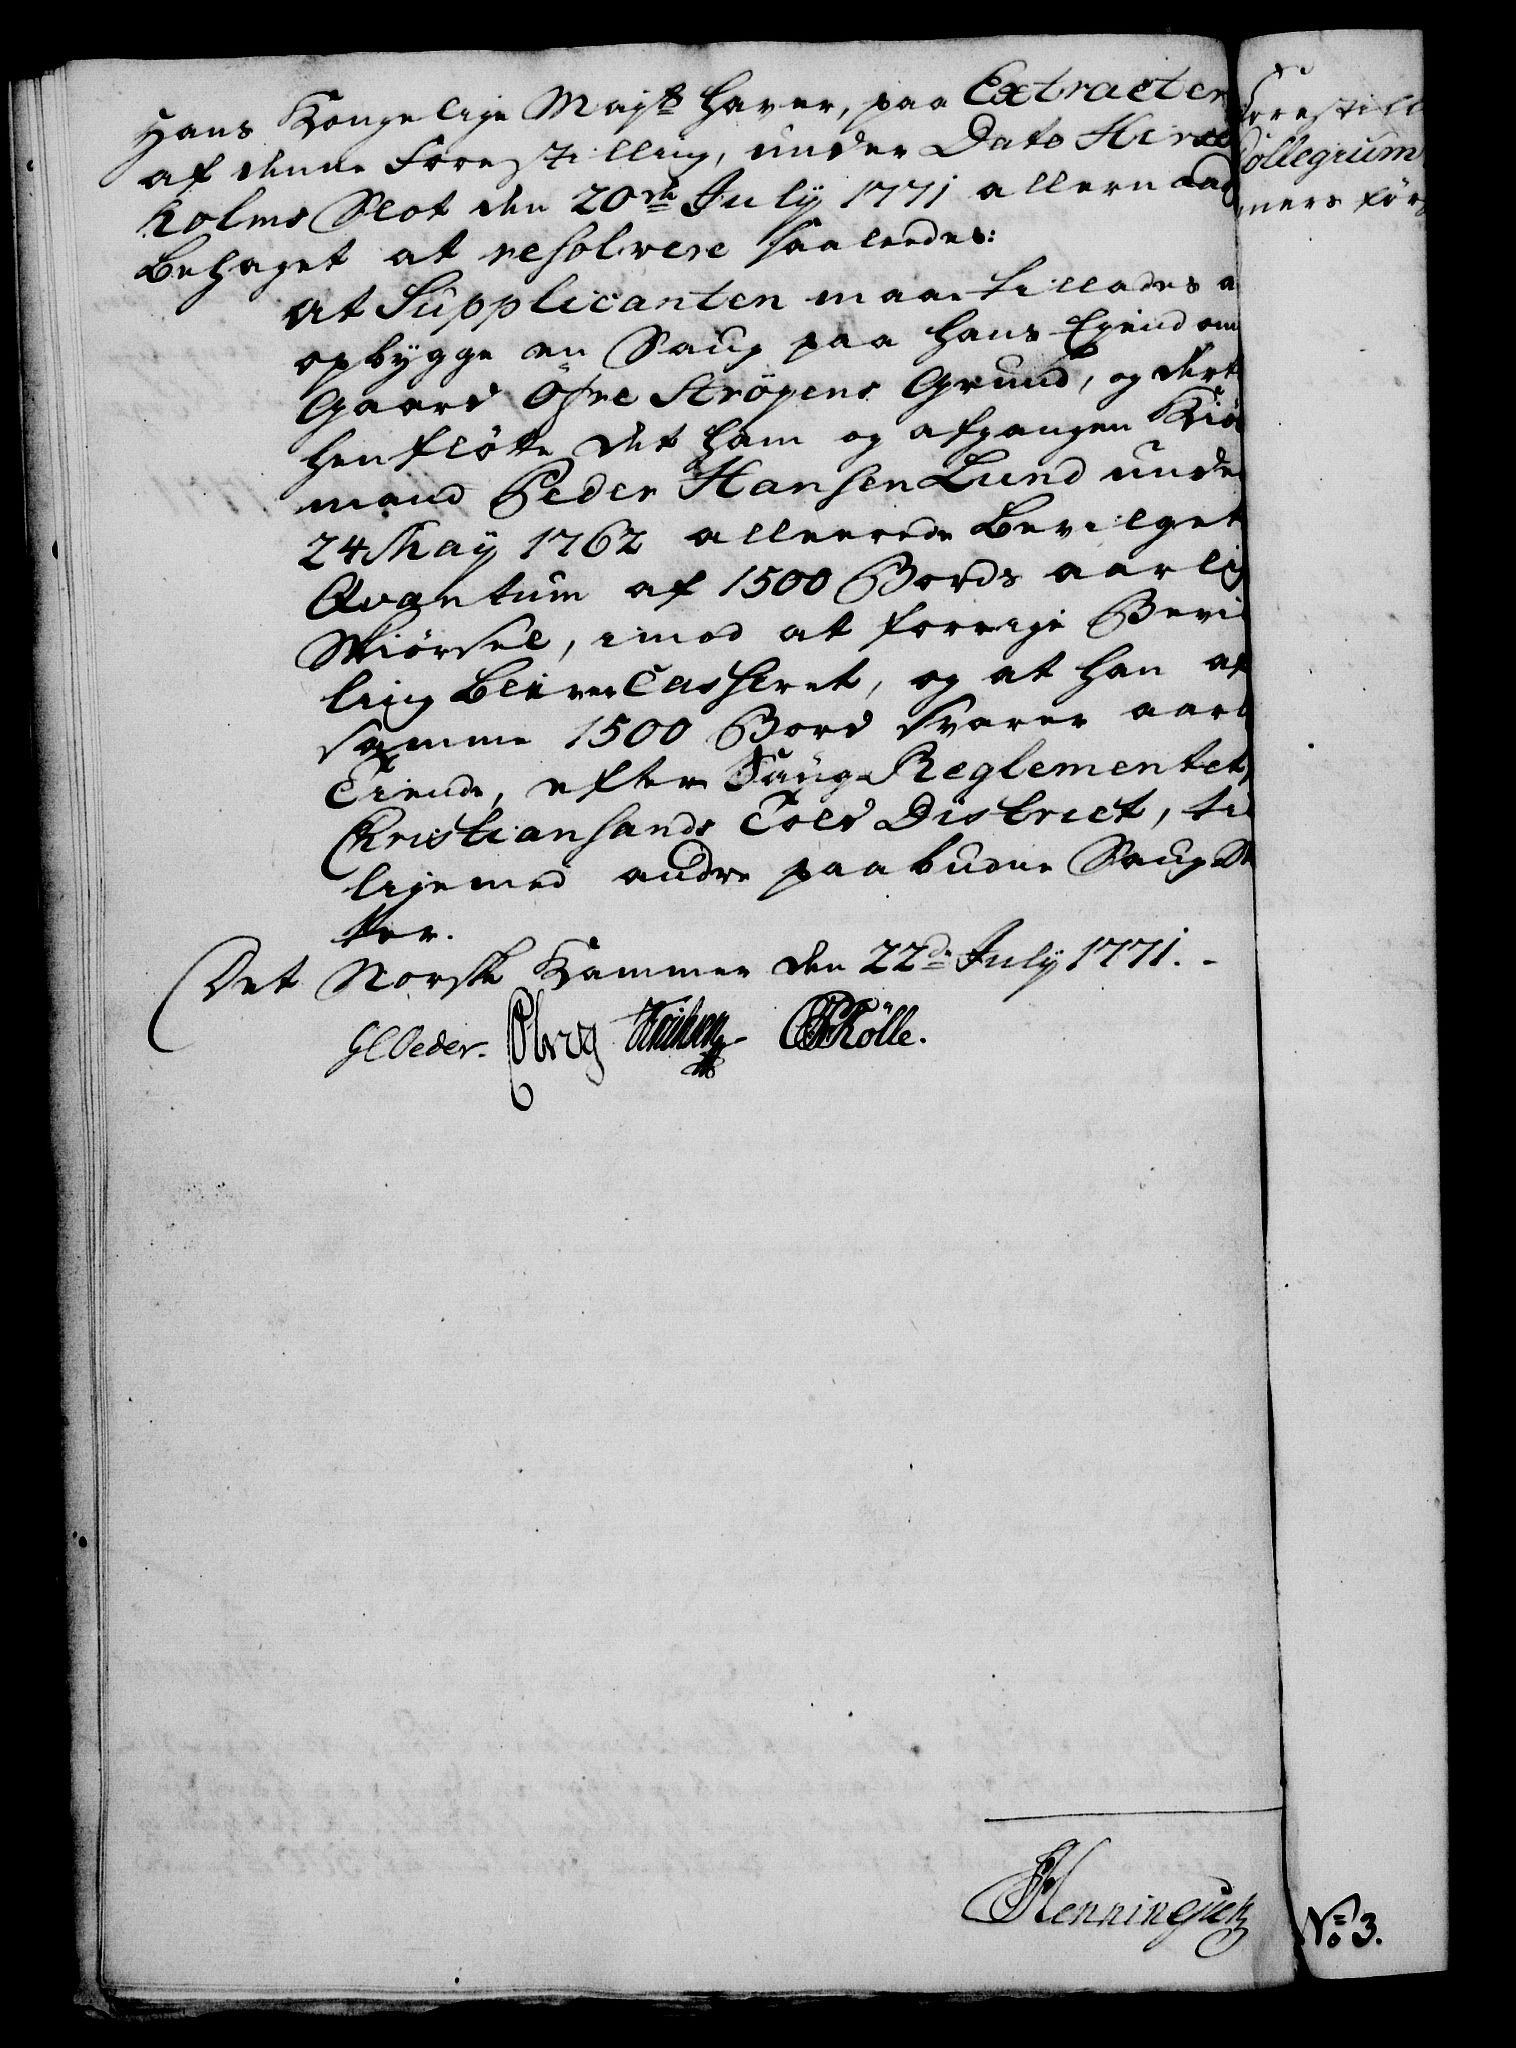 Hans Kongelige Mayts haver, paa Extracten
af denne Forestilling, under Dato Hirsch
holms Slot den 20de July 1771 allernaad
behaget at resolvere saaledes:
at Supplicanten maae tillades a
opbygge en Saug paa hans Eyendom
Gaard Öfre Ströpens Grund, og dert
henflötte det ham og afgangen Kiö
mand Peder Hansen Lund unde
24 May 1762 allerede bevilgete
Qvantum af 1500 Bords aarlig
Skiörsel, imod at forrige Bevil
ling bliver Casseret, og at han af
samme 1500 Bord svarer aarl
Tiende, efter Saug-Reglementet,
Christiansands Told District, til
ligemed andre paabudne Saug-Sk
ter.
Det Norske Kammer den 22de July 1771.-
GCOeder. PRölle.
Henningsen
Forestill
Collegium
mers förs
No 3.